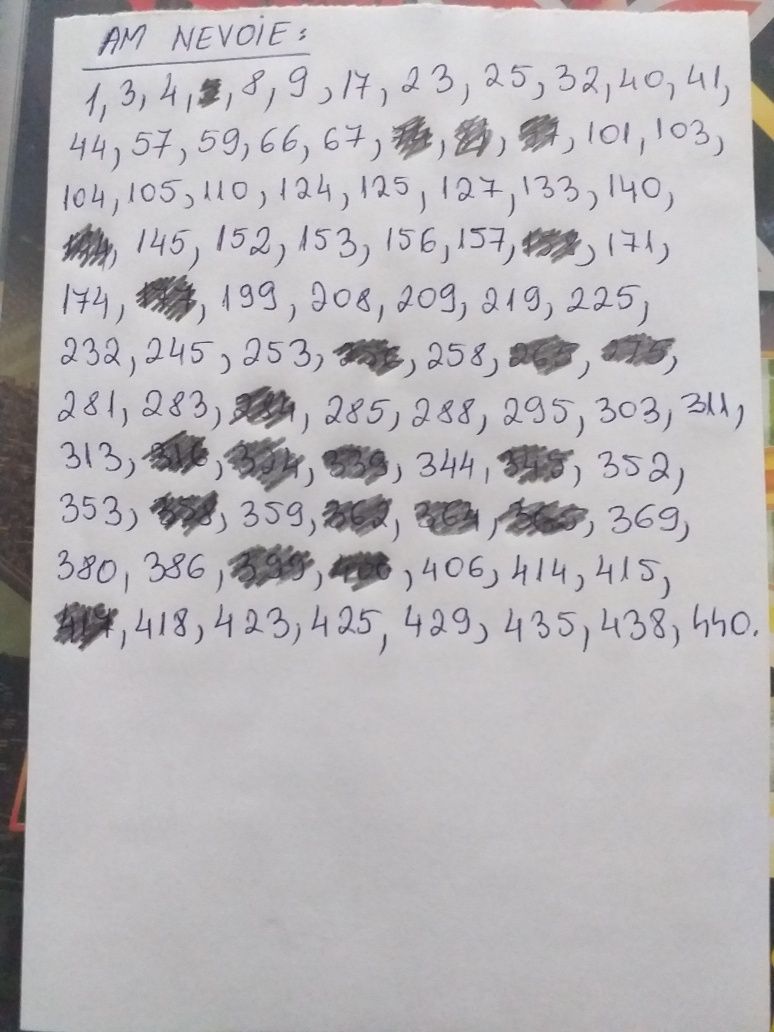 AM NEVOIE:
1, 3, 4, 8, 9, 17, 23, 25, 32, 40, 41,
44, 57, 59, 66, 67, 101, 103,
104, 105, 110, 124, 125, 127, 133, 140,
145, 152, 153, 156, 157, 171,
174, 199, 208, 209, 219, 225,
232, 245, 253, 258,
281, 283, 285, 288, 295, 303, 311,
313, 344, 352,
353, 359, 369,
380, 386, 406, 414, 415,
418, 423, 425, 429, 435, 438, 440.